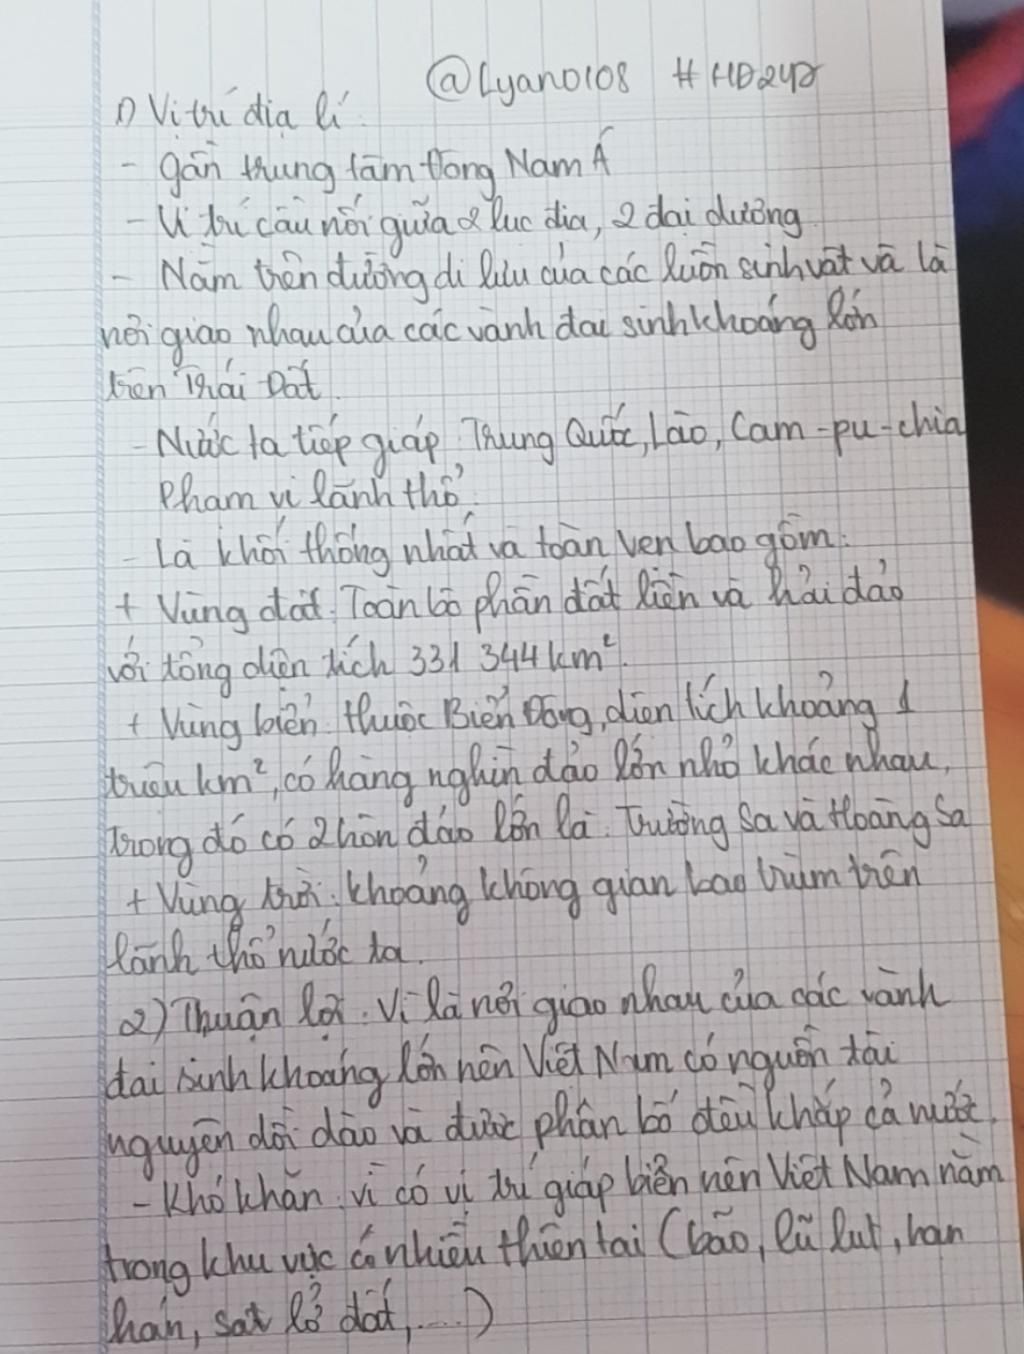 @Lyano108 #HD247
1) Vị trí địa lí:
- gần trung tâm Đông Nam Á
- Vị trí cầu nối giữa 2 lục địa, 2 đại dương
- Nằm trên đường di lưu của các luồn sinh vật và là
nơi giao nhau của các vành đai sinh khoáng lớn
trên Trái Đất.
- Nước ta tiếp giáp: Trung Quốc, Lào, Cam-pu-chia
Phạm vi lãnh thổ:
- Là khối thống nhất và toàn vẹn bao gồm:
+ Vùng đất: Toàn bộ phần đất liền và hải đảo
với tổng diện tích 331 344 km².
+ Vùng biển: thuộc Biển Đông, diện tích khoảng 1
triệu km², có hàng nghìn đảo lớn nhỏ khác nhau,
Trong đó có 2 hòn đảo lớn là: Trường Sa và Hoàng Sa
+ Vùng trời: khoảng không gian bao trùm trên
lãnh thổ nước ta.
2) Thuận lợi: Vì là nơi giao nhau của các vành
đai sinh khoáng lớn nên Việt Nam có nguồn tài
nguyên dồi dào và được phân bố đều khắp cả nước.
- Khó khăn: vì có vị trí giáp biển nên Việt Nam nằm
trong khu vực có nhiều thiên tai (bão, lũ lụt, hạn
hán, sạt lở đất,....)